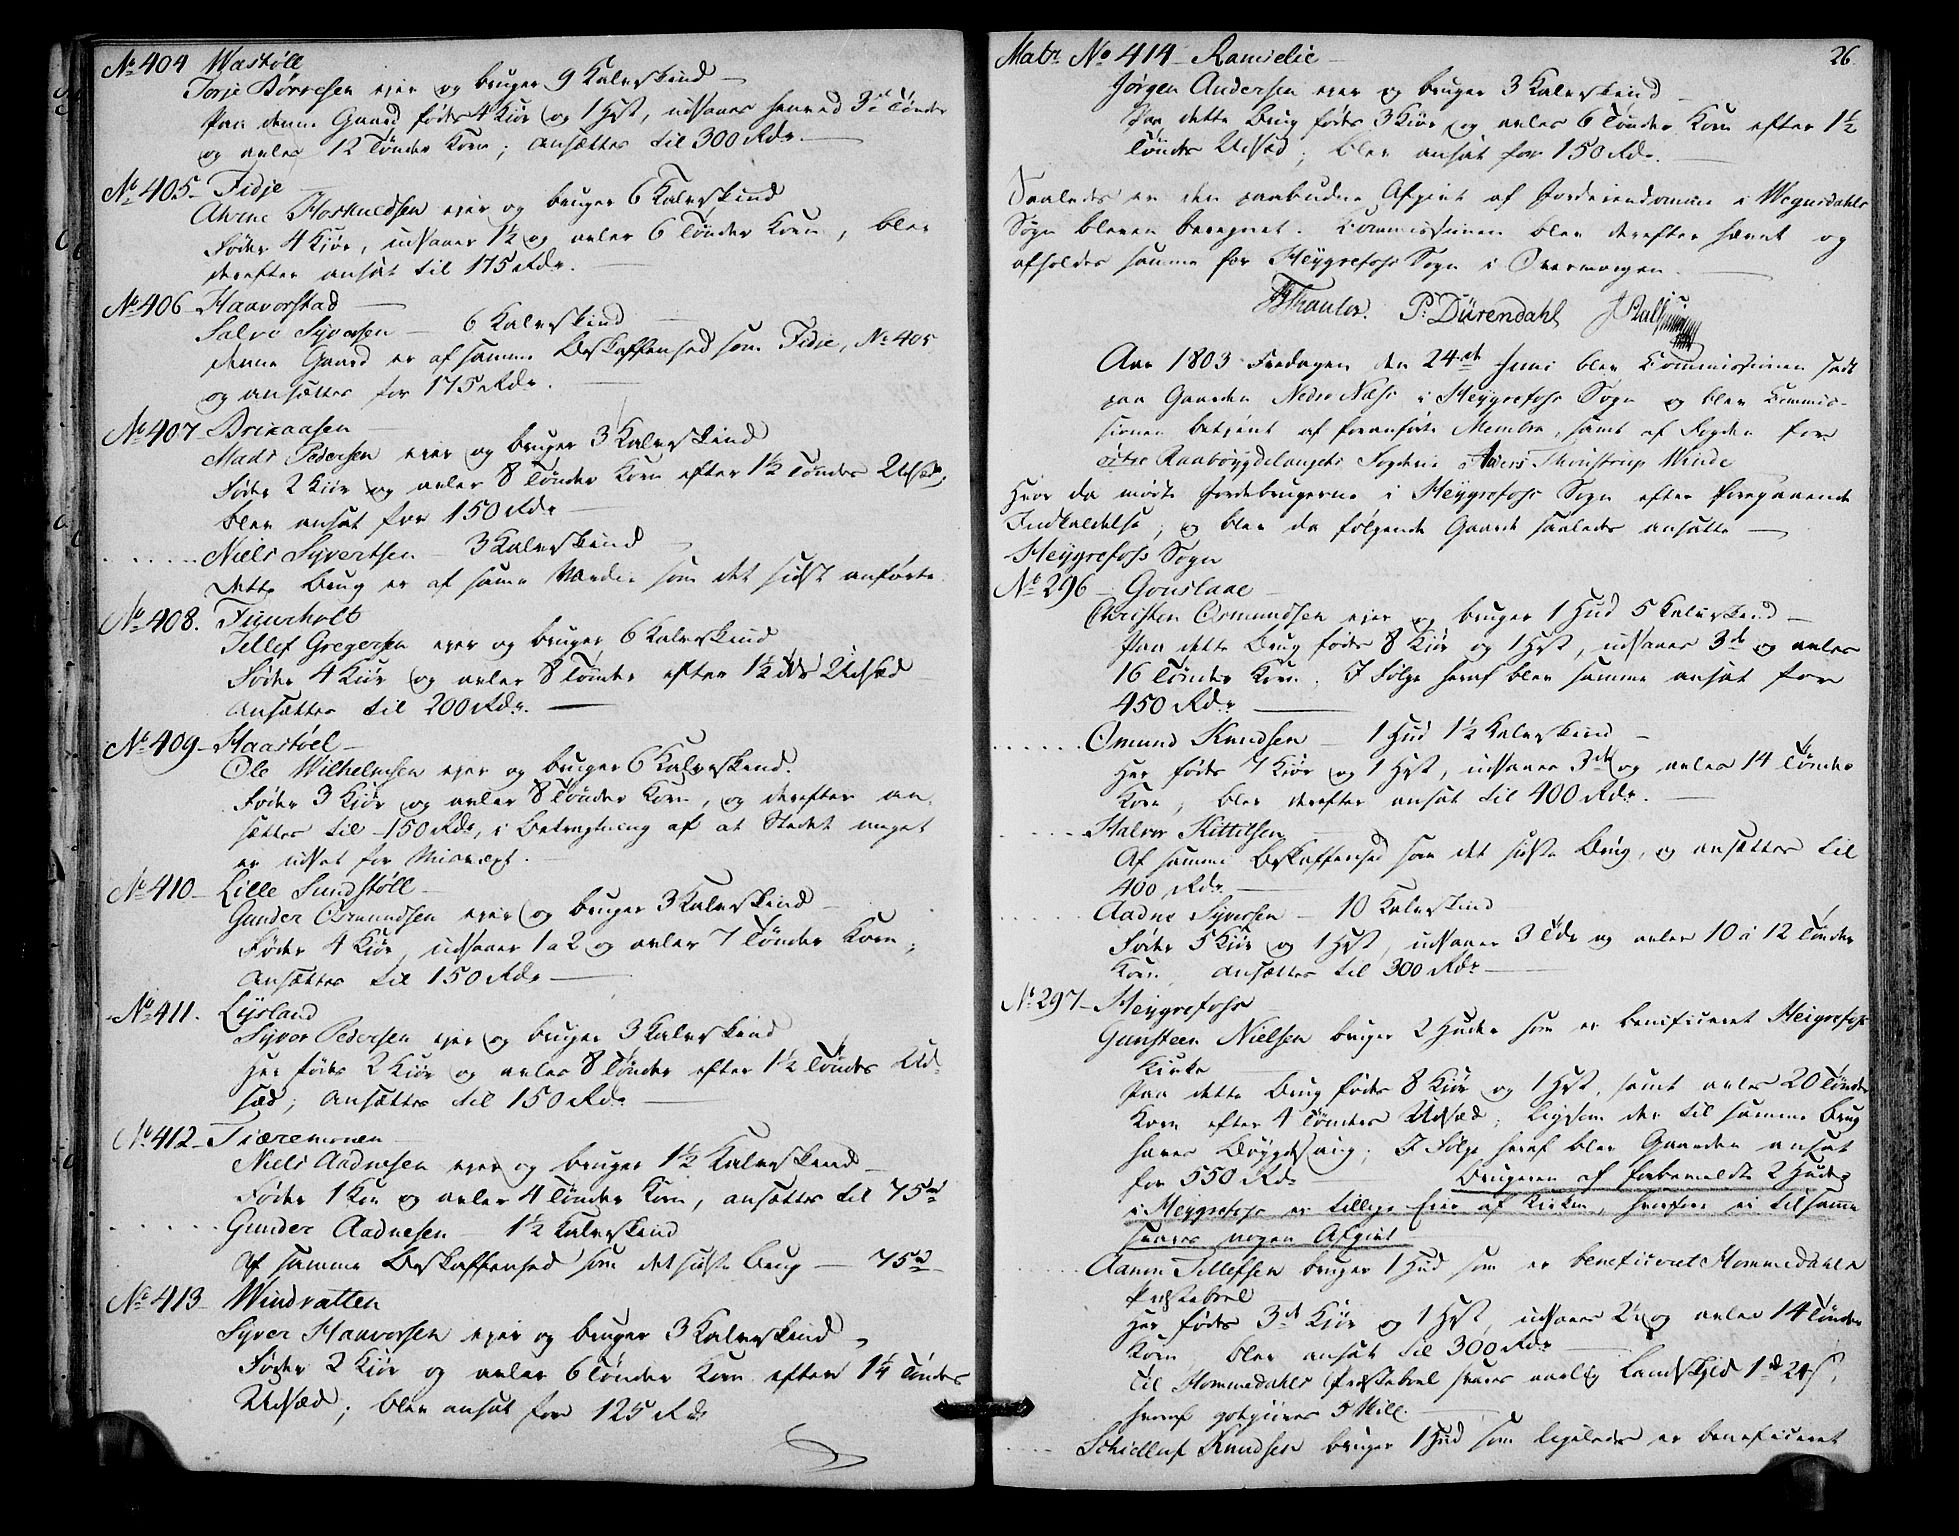 No 404 Wastøll
Torje Børresen ejer og bruger 9 Kalvskind —
Paa denne Gaard fødes 4 Kiør og 1 Hest, udsaaes henved 3de Tønder
og avles 12 Tønder Korn; ansættes til 300 Rdr. —
No 405 – Fidje —
Ahrne Hoskuldsen ejer og bruger 6 Kalvskind
føder 4 Kiør, udsaaer 1½ og avler 6 Tønder Korn, blev
derefter ansat til 175 Rdr. —
No 406 – Haavorstad —
Salve Syversen — 6 Kalvskind —
denne Gaard er af samme Beskaffenhed som Fidje, No 405
og ansættes for 175 Rdr. —
No 407 Brixaasen —
Mads Pedersen ejer og bruger 3 Kalvskind
føder 2 Kiør og avler 8 Tønder Korn efter 1½ Tøndes Udsæd,
blev ansat for 150 Rdr —
Niels Syvertsen — 3 Kalvskind —
Dette Brug er af samme Værdie som det sidst anførte.
No 408. Fuurholt
Tellef Gregersen ejer og bruger 6 Kalvskind
føder 4 Kiør og avler 8 Tønder efter 1½ Tds Udsæd
ansættes til 200 Rdr. —
No 409 – Haastøel —
Ole Wilhelmsen ejer og bruger 6 Kalvskind.
føder 3 Kiør og avler 8 Tønder Korn, og derefter an-
sættes til 150 Rdr, i Betragtning af at Stedet meget
er udsat for Misvæxt. —
No 410 – Lille Sundstøll —
Gunder Osmundsen ejer og bruger 3 Kalvskind —
føder 4 Kiør, udsaaer 1 a 2 og avler 7 Tønder Korn;
ansættes til 150 Rdr —
No 411. Lysland
Syver Pedersen ejer og bruger 3 Kalvskind
her fødes 2 Kiør og avles 8 Tønder efter 1½ Tøndes Ud-
sæd; ansættes til 150 Rdr —
No 412 – Tiæremonen —
Niels Aadnesen ejer og bruger 1½ Kalvskind —
føder 1 Koe og avler 4 Tønder Korn, ansættes til 75 rd
Gunder Aadnesen — 1½ Kalvskind
Af samme Beskaffenhed som det sidste Brug — 75 rd
No 413 – Windvatten
Syver Haavorsen ejer og bruger 3 Kalvskind,
føder 2 Kiør og avler 6 Tønder Korn efter 1¼ Tøndes
Udsæd; blev ansat for 125 Rdr
26
Matr No 414 – Ramselie —
Jørgen Andersen ejer og bruger 3 Kalvskind —
Paa dette Brug fødes 3 Kiør og avles 6 Tønder Korn efter 1½
Tøndes Udsæd; blev ansat for 150 Rdr. —
Saaledes er den paabudne Afgivt af Jordeiendomme i Wegusdahls
Sogn bleven beregnet. Commissionen blev derefter hævet og
afholdes samme for Heygrefoss Sogn i Overmorgen. —
P. Dürendahl
Aar 1803 Fredagen den 24de Juni blev Commissionen sadt
paa Gaarden Nedre Næss i Heygrefoss Sogn og blev Commis-
sionen betjent af foranførte Membre, samt af Fogden for
Østre Raabøygdelaugets Fogderie Anders Thoustrup Winde
hvor da mødte Jordebrugerne i Heygrefoss Sogn efter foregaaende
Indkaldelse, og blev da følgende Gaarde saaledes ansatte —
Heygrefoss Sogn
No 296 – Gouslaae —
Christen Osmundsen ejer og bruger 1 Hud 5 Kalvskind —
Paa dette Brug fødes 8 Kiør og 1 Hest, udsaaes 3de og avles
16 Tønder Korn. I Følge heraf blev samme ansat for
450 Rdr —
Omund Knudsen — 1 Hud 1½ Kalvskind —
Her fødes 7 Kiør og 1 Hest, udsaaes 3de og avles 14 Tønder
Korn; blev derefter ansat til 400 Rdr. —
Halvor Kittilsen —
Af samme Beskaffenhed som det sidste Brug, og ansættes til
400 Rdr. —
Aadne Syversen — 10 Kalvskind
føder 5 Kiør og 1 Hest, udsaaer 3 Tdr og avler 10 à 12 Tønder
Korn, ansættes til 300 Rdr —
No 297 – Heygrefoss
Gunsteen Nielsen bruger 2 Huder som er benificeret Heigrefoss
Kirke —
Paa dette Brug fødes 8 Kiør og 1 Hest, samt avles 20 Tønder
Korn efter 4 Tønders Udsæd; ligesom der til samme Brug
haves Bøygdesaug; I Følge heraf blev Gaarden ansat
for 550 Rdr — Brugeren af forbemeldte 2 Huder
i Heygrefoss er tillige Eier af Kirken, hvorfore ei til samme
svares nogen Afgivt
Aanon Tellefsen bruger 1 Hud som er beneficeret Hommedahls
Præsteboel
Her fødes 3de Kiør og 1 Hest, udsaaes 2½ og avles 14 Tønder
Korn, blev ansat til 300 Rdr —
Til Hommedahls Præstebol svares aarlig Landskyld 1 rd 24 s,
hvoraf godtgiøres 5 Skill. —
Schielluf Knudsen bruger 1 Hud som ligeledes er beneficeret